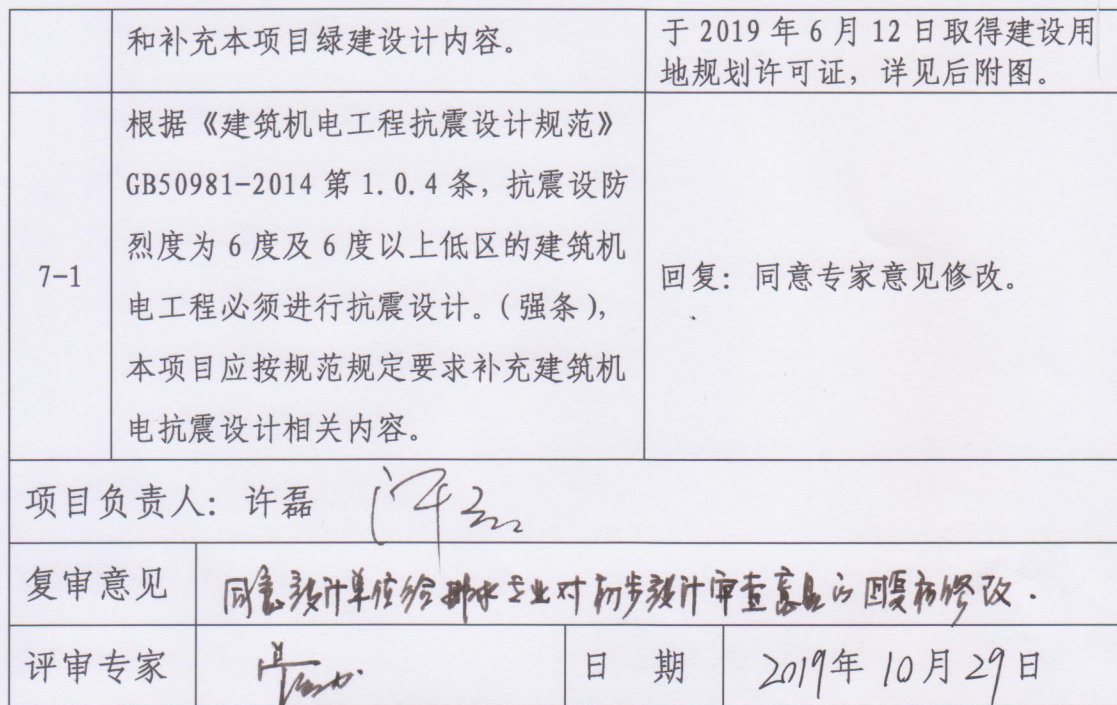 和补充本项目绿建设计内容。
于 2019 年 6 月 12 日取得建设用
地规划许可证，详见后附图。
7-1
根据《建筑机电工程抗震设计规范》
GB50981-2014 第 1.0.4 条，抗震设防
烈度为 6 度及 6 度以上低区的建筑机
电工程必须进行抗震设计。（强条），
本项目应按规范规定要求补充建筑机
电抗震设计相关内容。
回复：同意专家意见修改。
项目负责人：许磊 许磊
复审意见
同意设计单位给排水专业对初步设计审查意见的回复和修改.
评审专家
日 期
2019年 10月 29日